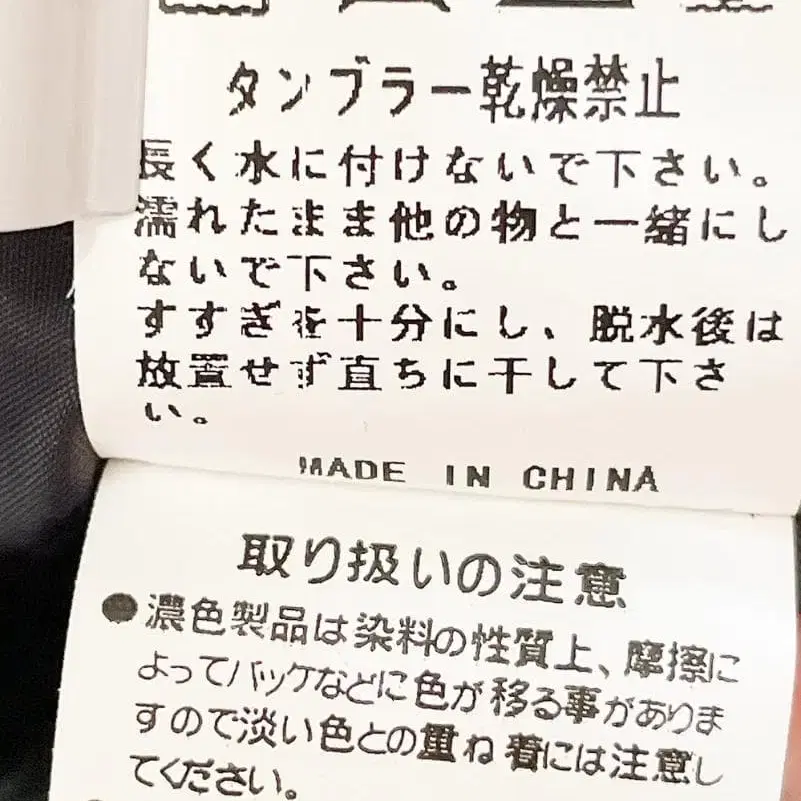 タンブラー乾燥禁止
長く水に付けないで下さい。
濡れたまま他の物と一緒にし
ないで下さい。
すすぎを十分にし、脱水後は
放置せず直ちに干して下さ
い。
MADE IN CHINA
取り扱いの注意
●濃色製品は染料の性質上、摩擦に
よってバッケなどに色が移る事がありま
すので淡い色との重ね着には注意し
てください。